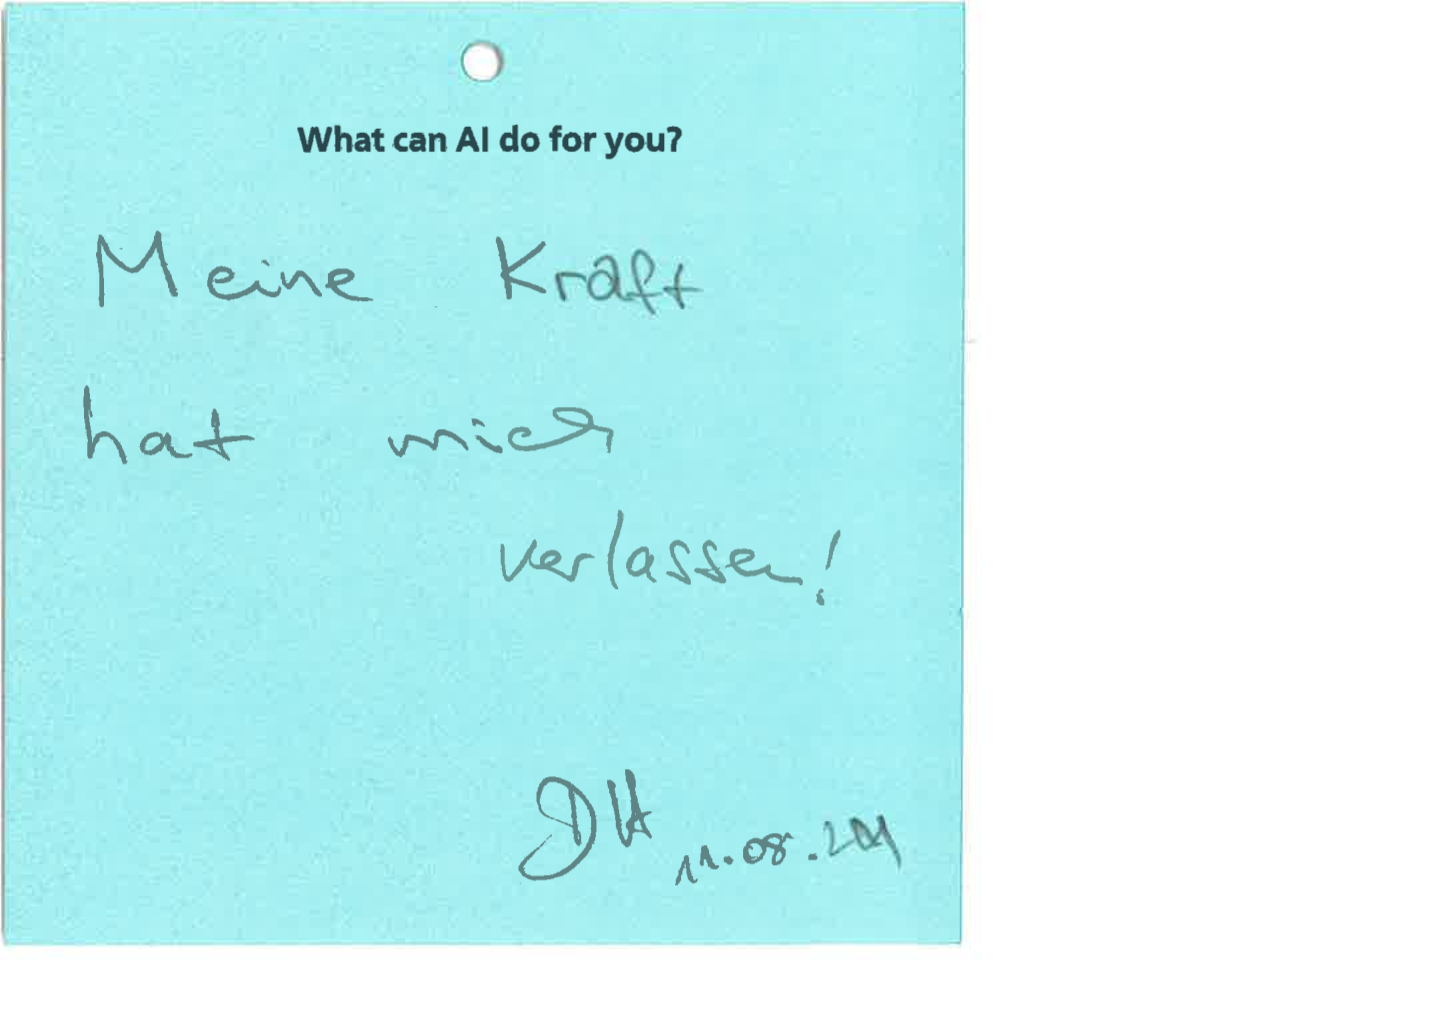 What can AI do for you?
Meine Kraft
hat mich
verlassen!
DH 11.08.